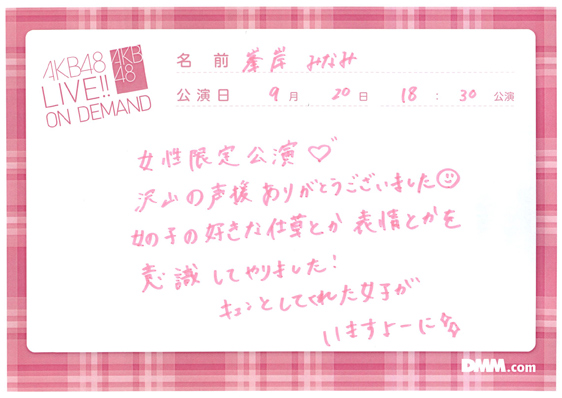 AKB48
LIVE!!
ON DEMAND
AKB
48
名前 峯岸 みなみ
公演日 9月 20日 18 : 30 公演
女性限定公演♡
沢山の声援ありがとうございました☺
女の子の好きな仕草とか表情とかを
意識してやりました！
キュンとしてくれた女子が
いますよーに
DMM.com